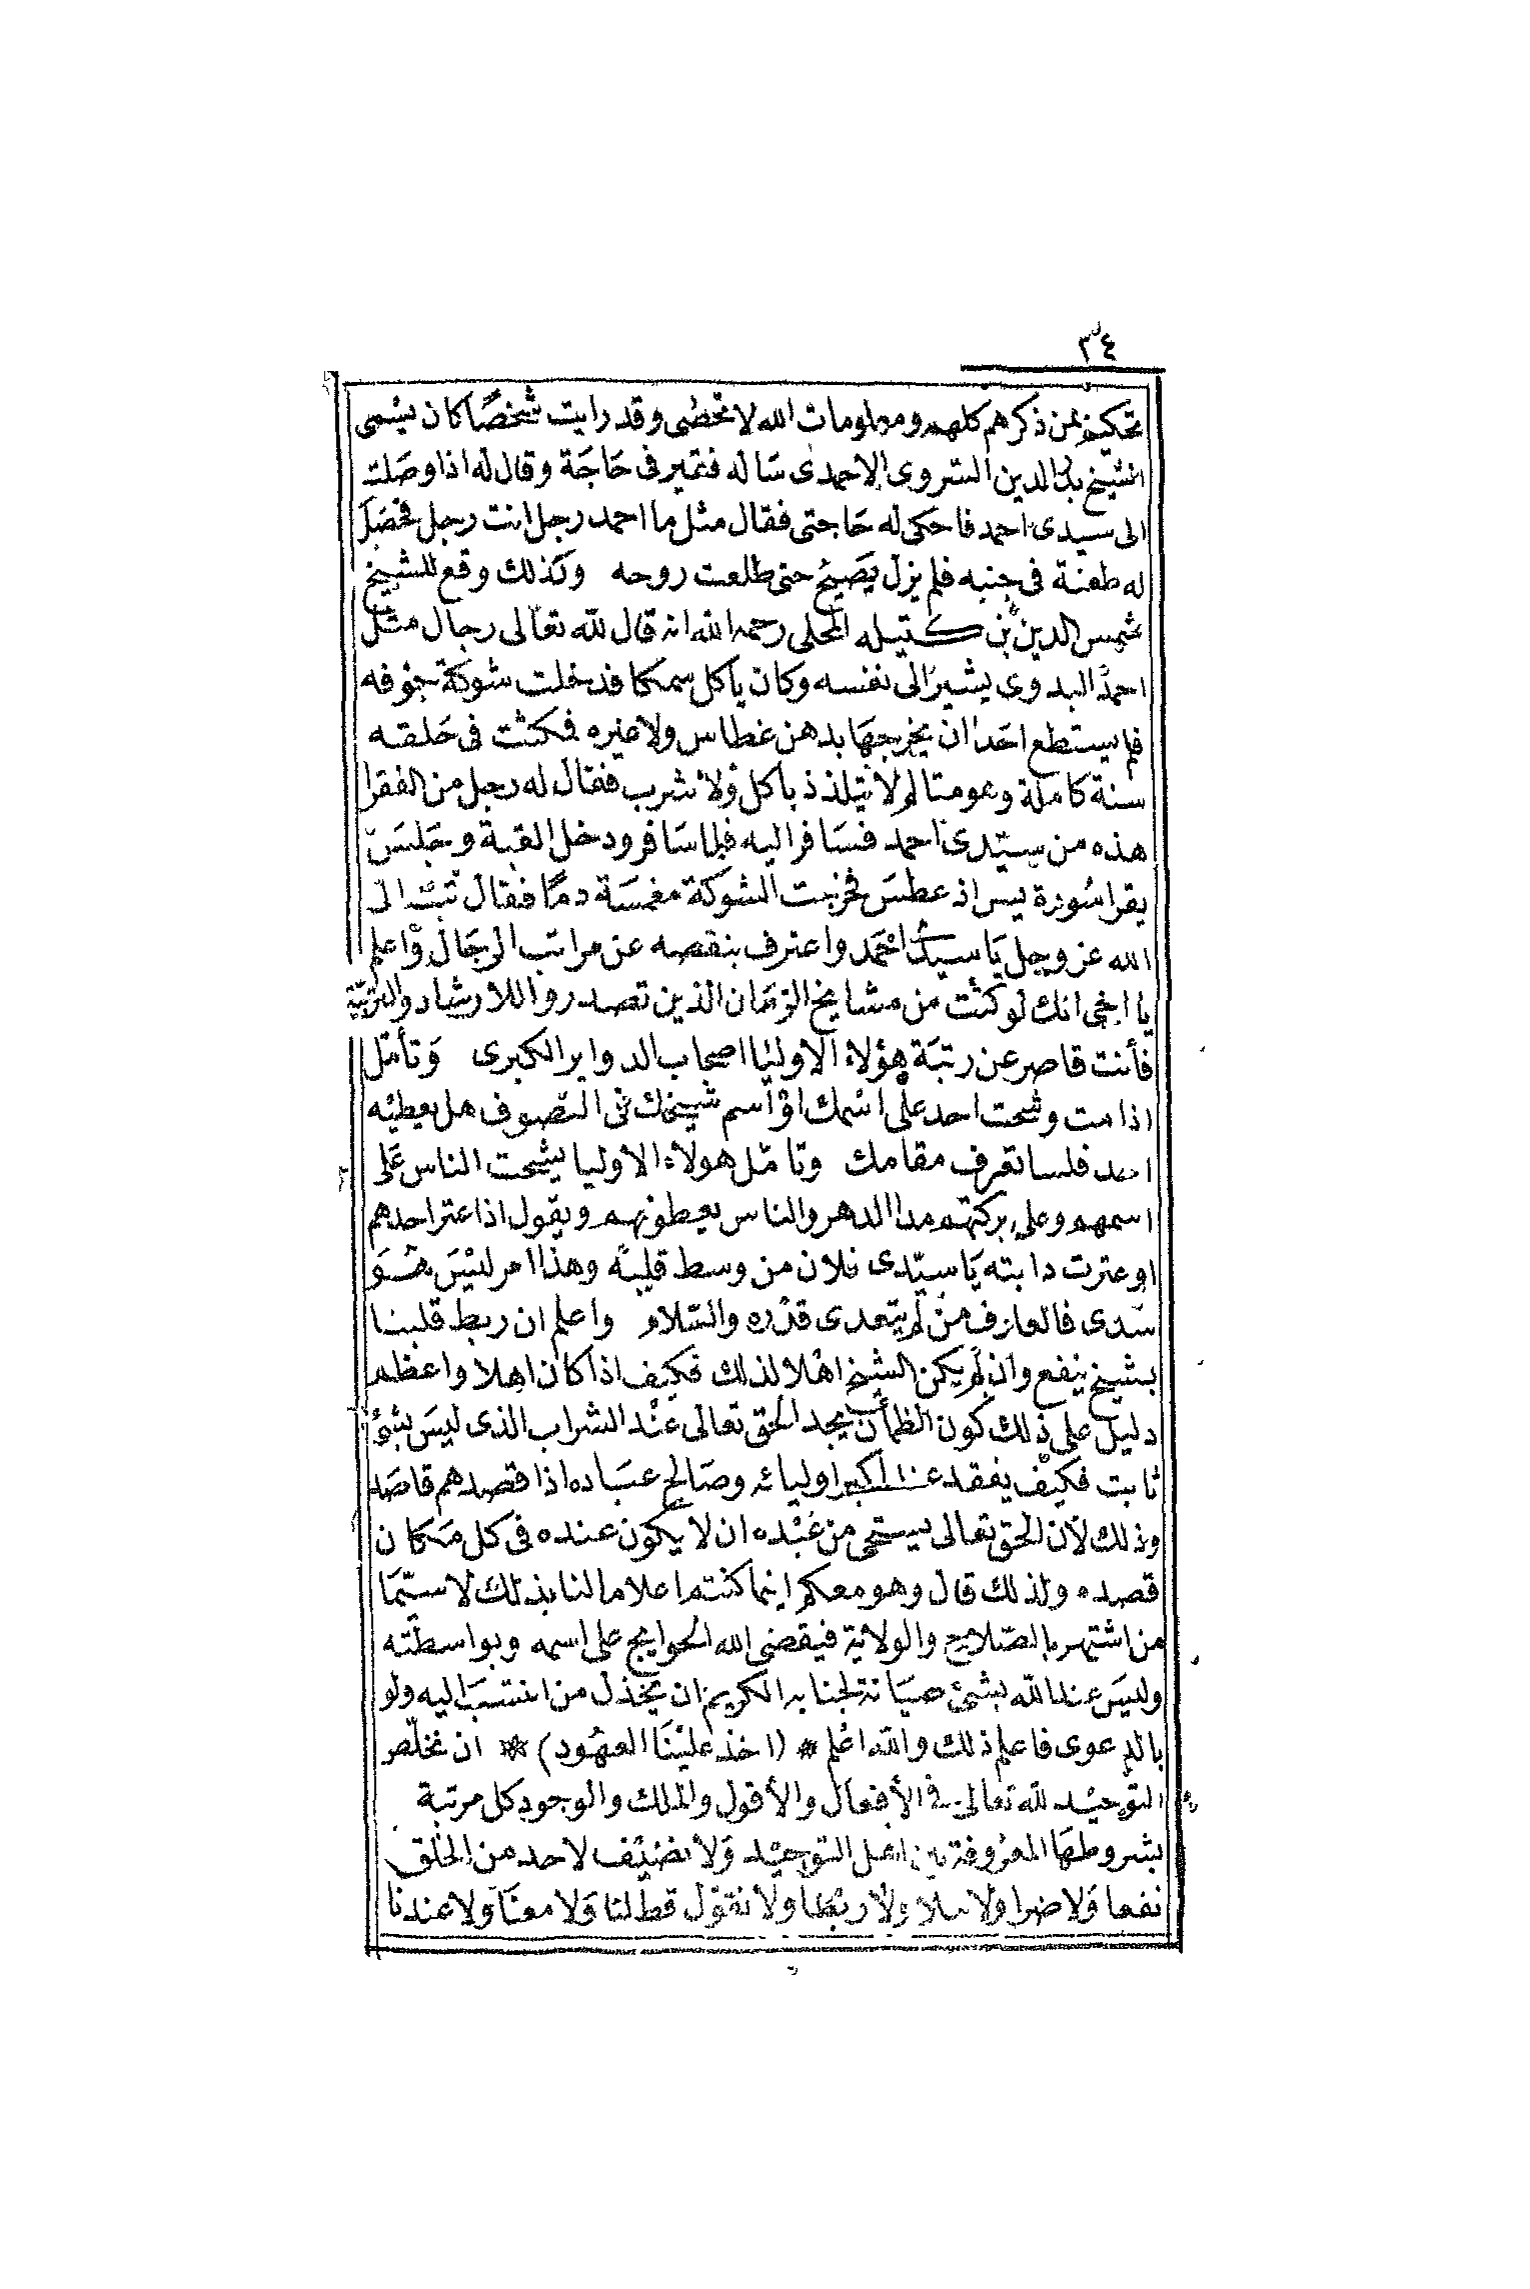 ٣٤
تحكيمٌ لمن ذكرهم كلهم ومعلومات الله لا تحصى وقد رايت شخصًا كان يسمى
الشيخ بدر الدين السروى الاحمدى ساله فقير فى حَاجَة وقال له اذا وصَلت
الى سيدى احمد فاحكى له حَاجتى فقال مثل ما احمد رجل انت رجل فحَصَل
له طعنة فى جنبه فلم يزل يَصيح حتى طلعت روحه وكذلك وقع للشيخ
شمس الدين بن كتيله المحلى رحمه الله انه قال لله تعَالى رجال مثل
احمد البدوى يشير الى نفسه وكان ياكل سمكا فدخلت شوكة بجوفه
فلم يستطع احَد ان يخرجهَا بدهن عطاس ولا غيره فمكثت فى حَلقه
سنة كاملة وهو متالم لا يتلذذ باكل وُلا شرب فقال له رجل من الفقرا
هذه من سيّدى احمد فسَافر اليه فلما سَافر ودخل القبة وجَلسَ
يقرا سُورة يس اذ عطسَ فخرجت الشوكة مغمسَة دمًا فقال تبتُ الى
الله عز وجل يَا سيدى احْمَد واعترف بنقصه عن مراتب الرجَال وْاعلم
يا اخى انك لو كنْت من مشايخ الزمَان الذين تصدروا للارشاد والتربية
فأنت قاصر عن رتبَة هؤلاء الاوليَا اصحاب الدواير الكبرى وَتأمّل
اذا مت وشحت احد على اسْمك اوْ اسم شيخك فى التصوف هل يعطيْه
احد فلسا تعرف مقامك وتامّل هولاء الاوليا يشحت الناس عَلى
اسمهم وعلى بركتهم مدا الدهر والناس يعطونهم ويقول اذا عتر احدهم
او عترت دابته يَا سيّدى فلان من وسط قلبه وهذا امر ليْسَ هُوَ
سُدى فالعارف منْ لم يتعدى قدْره والسّلام واعلم ان ربط قلبنا
بشيخ ينفع وان لم يكن الشيخ اهْلا لذلك فكيف اذا كان اهلا واعظم
دليل على ذلك كون الظمأن يجد الحق تعالى عنْد السّراب الذى ليسَ بشئ
ثابت فكيْف يفقد عند اكبر اوليائه وصَالح عبَاده اذا قصدهم قاصَد
وذلك لأن الحق تعالى يستحى من عَبْده ان لا يكون عنده فى كل مَكان
قصده ولذلك قال وهو معكم اينما كنتم اعلاما لنا بذلك لا سيّمَا
من اشتهر بالصّلاح والولاية فيقضى الله الحوايج على اسمه وبواسطته
وليسَ عند الله بشئ صيَانة لجنابه الكريم ان يخذل من انتسَبَ اليه ولو
بالدعوى فاعلم ذلك والله اعْلم * (اخذ عليْنَا العهُود) * ان نخلّص
التوحيْد لله تعالى فى الأفعَال والأقول والملك والوجود كل مرتبة
بشروطهَا المعرُوفة بين اهل التوحيْد وَلا نضيْف لاحد من الخلق
نفعا وَلا ضرا ولا ولا ربْطا ولا نقوْل قط لنا وَلا معنَا وَلا عندنا